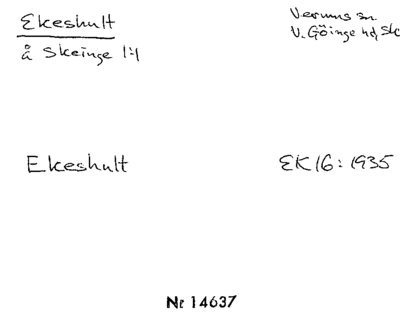 Ekeshult
å Skeinge 1:1
Verums sn.
V. Göinge hd, Sk
Ekeshult
EK 16: 1935
Nr 14637